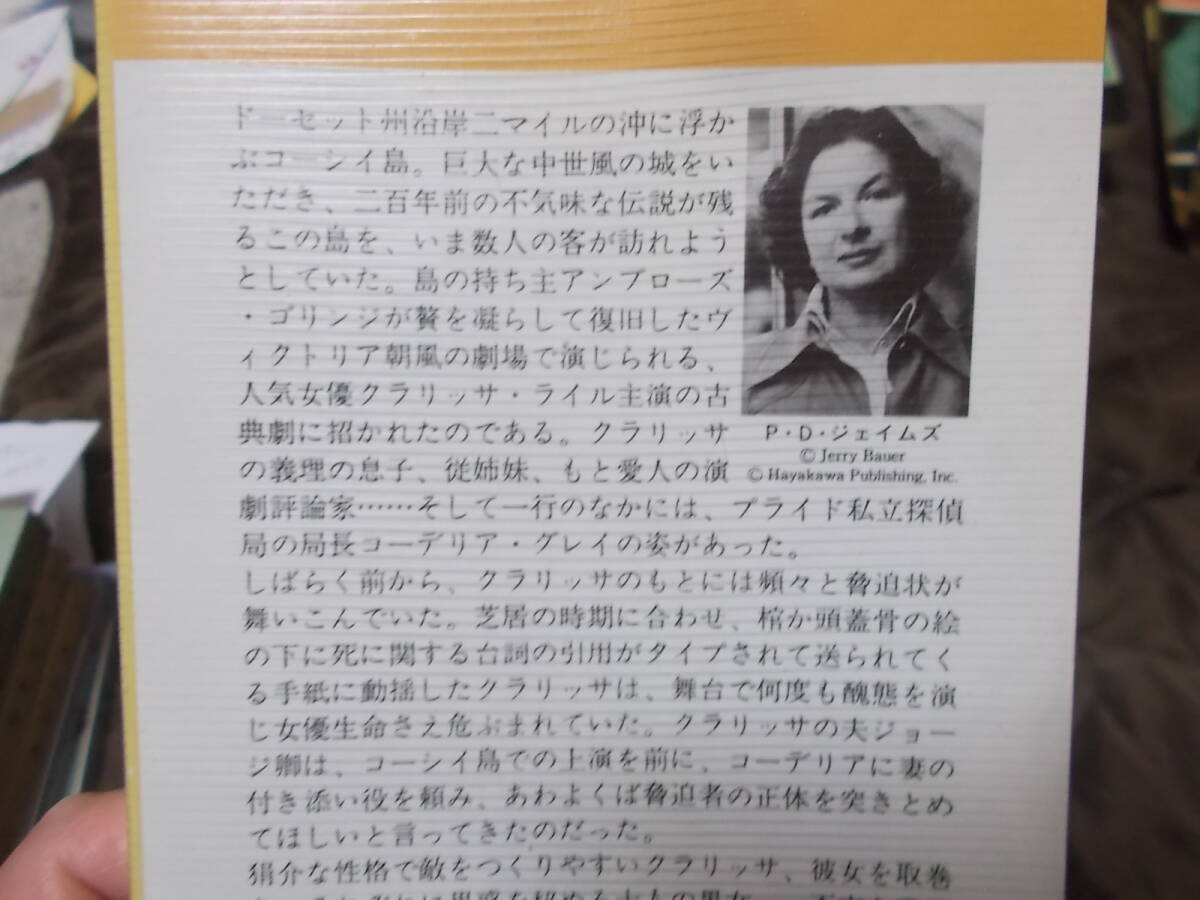 ドーセット州沿岸二マイルの沖に浮か
ぶコーシイ島。巨大な中世風の城をい
ただき、二百年前の不気味な伝説が残
るこの島を、いま数人の客が訪れよう
としていた。島の持ち主アンブローズ
・ゴリンジが贅を凝らして復旧したヴ
ィクトリア朝風の劇場で演じられる、
人気女優クラリッサ・ライル主演の古
典劇に招かれたのである。クラリッサ
の義理の息子、従姉妹、もと愛人の演
劇評論家……そして一行のなかには、プライド私立探偵
局の局長コーデリア・グレイの姿があった。
しばらく前から、クラリッサのもとには頻々と脅迫状が
舞いこんでいた。芝居の時期に合わせ、棺か頭蓋骨の絵
の下に死に関する台詞の引用がタイプされて送られてく
る手紙に動揺したクラリッサは、舞台で何度も醜態を演
じ女優生命さえ危ぶまれていた。クラリッサの夫ジョー
ジ卿は、コーシイ島での上演を前に、コーデリアに妻の
付き添い役を頼み、あわよくば脅迫者の正体を突きとめ
てほしいと言ってきたのだった。
狷介な性格で敵をつくりやすいクラリッサ、彼女を取巻
P・D・ジェイムズ
© Jerry Bauer
© Hayakawa Publishing, Inc.